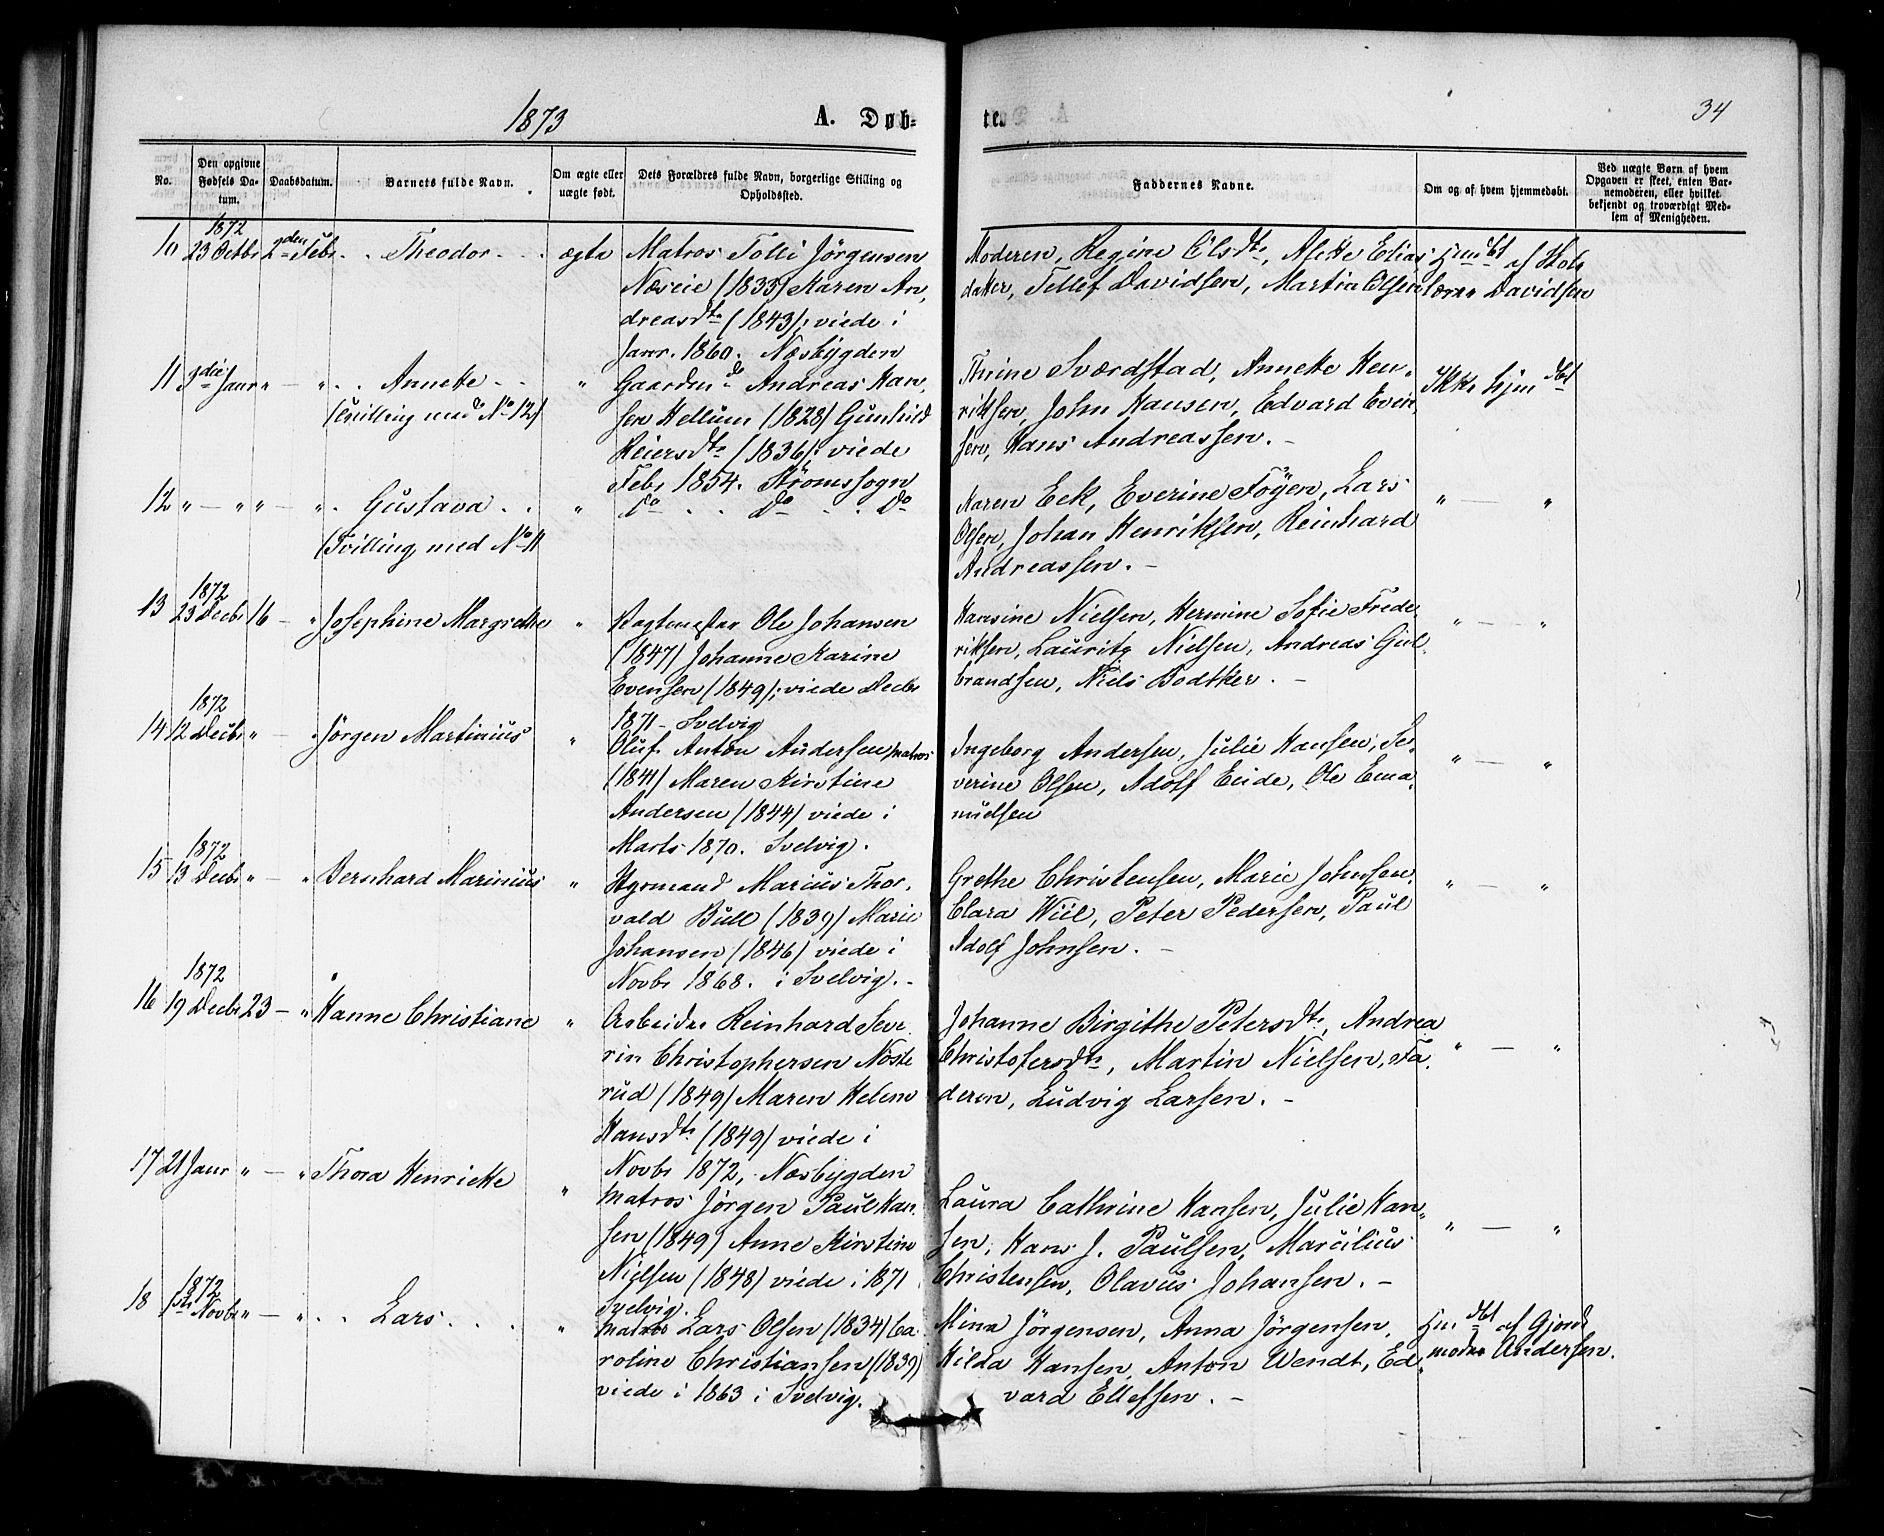 1873 A. Døb- te. 34
No. Den opgivne Fødsels Datum. Daabsdatum. Barnets fulde Navn. Om ægte eller uægte født. Dets Forældres fulde Navn, borgerlige Stilling og Opholdssted. Faddernes Navne. Om og af hvem hjemmedøbt. Ved uægte Børn af hvem Opgaven er skeet, enten Barnemoderen, eller hvilket bekjendt og troværdigt Medlem af Menigheden.
1872
10 23 Octbr 2den Febr. . . Theodor . . . ægte Matros Tolli Jörgensen
Næseie (1833) Karen An,
dreasdtr (1843); viede i
Janr. 1860. Næsbygden
Moderen, Regine Olsdtr, Alette Elias
datter, Tellef Davidsen, Martin Olsen
Hjmdbt af Skole
lærer Davidsen
11 9die Janr " — " . . Annette . . " Gaardmd Andreas Han,
(Tvilling med No 12) sen Hellum (1828) Gunhild
Reiersdtr (1836); viede
Febr 1854. Strömssogn
Thrine Sværdstad, Annette Hen,
riksen, John Hansen, Edvard Even,
sen, Hans Andreassen. —
Ikke hjmdbt
12 " — " " — " . Gustava . . " Do . . Do . . Do
(Tvilling med No 11
Karen Eek, Everine Föyen, Lars
Olsen, Johan Henriksen, Reinhard
Andreassen. —
" — "
1872
13 23 Decbr 16 — " Josephine Margrethe " Ole Johansen
(1847) Johanne Karine
Evensen (1849); viede Decbr
1871 — Svelvig
Hansine Nielsen, Hermine Sofie Frede,
riksen, Lauritz Nielsen, Andreas Gul,
brandsen, Niels Bodtker. —
" — "
1872
14 12 Decbr " — " Jörgen Martinius " Oluf Anton Andersen, matros
(1841) Maren Kirstine
Andersen (1844) viede i
Marts 1870. Svelvig.
Ingeborg Andersen, Julie Hansen, Se,
verine Olsen, Adolf Eide, Ole Ema,
nuelsen
" — "
1872
15 13 Decbr " — " Bernhard Marinius " Styrmand Marius Thor,
vald Bull (1839) Marie
Johansen (1846) viede i
Novbr 1868. i Svelvig. —
Grethe Christensen, Marie Johnsen,
Clara Wiil, Peter Pedersen, Paul
Adolf Johnsen. —
" — "
1872
16 19 Decbr 23 — " Hanne Christiane " Arbeider Reinhard Seve,
rin Christophersen Nöste
rud (1849) Maren Helene
Hansdtr (1849) viede i
Novbr 1872, Næsbygden
Johanne Birgithe Petersdtr, Andrea
Christofersdtr, Martin Nielsen, Fa,
deren, Ludvig Larsen. —
" — "
17 21 Janr " — " Thora Henriette " Matros Jörgen Paul Han,
sen (1849) Anne Kirstine
Nielsen (1848) viede i 1871
Svelvig.
Laura Cathrine Hansen, Julie Han,
sen, Hans J. Paulsen, Marcilius
Christensen, Olavus Johansen. —
" — "
1872
18 1ste Novbr " — " . . Lars . . . " Matros Lars Olsen (1834) Ca,
roline Christiansen (1839)
viede i 1863 i Svelvig.
Mina Jörgensen, Anna Jörgensen,
Hilda Hansen, Anton Wendt, Ed,
vard Ellefsen. —
Hjmdbt af Gjord
moder Andersen.